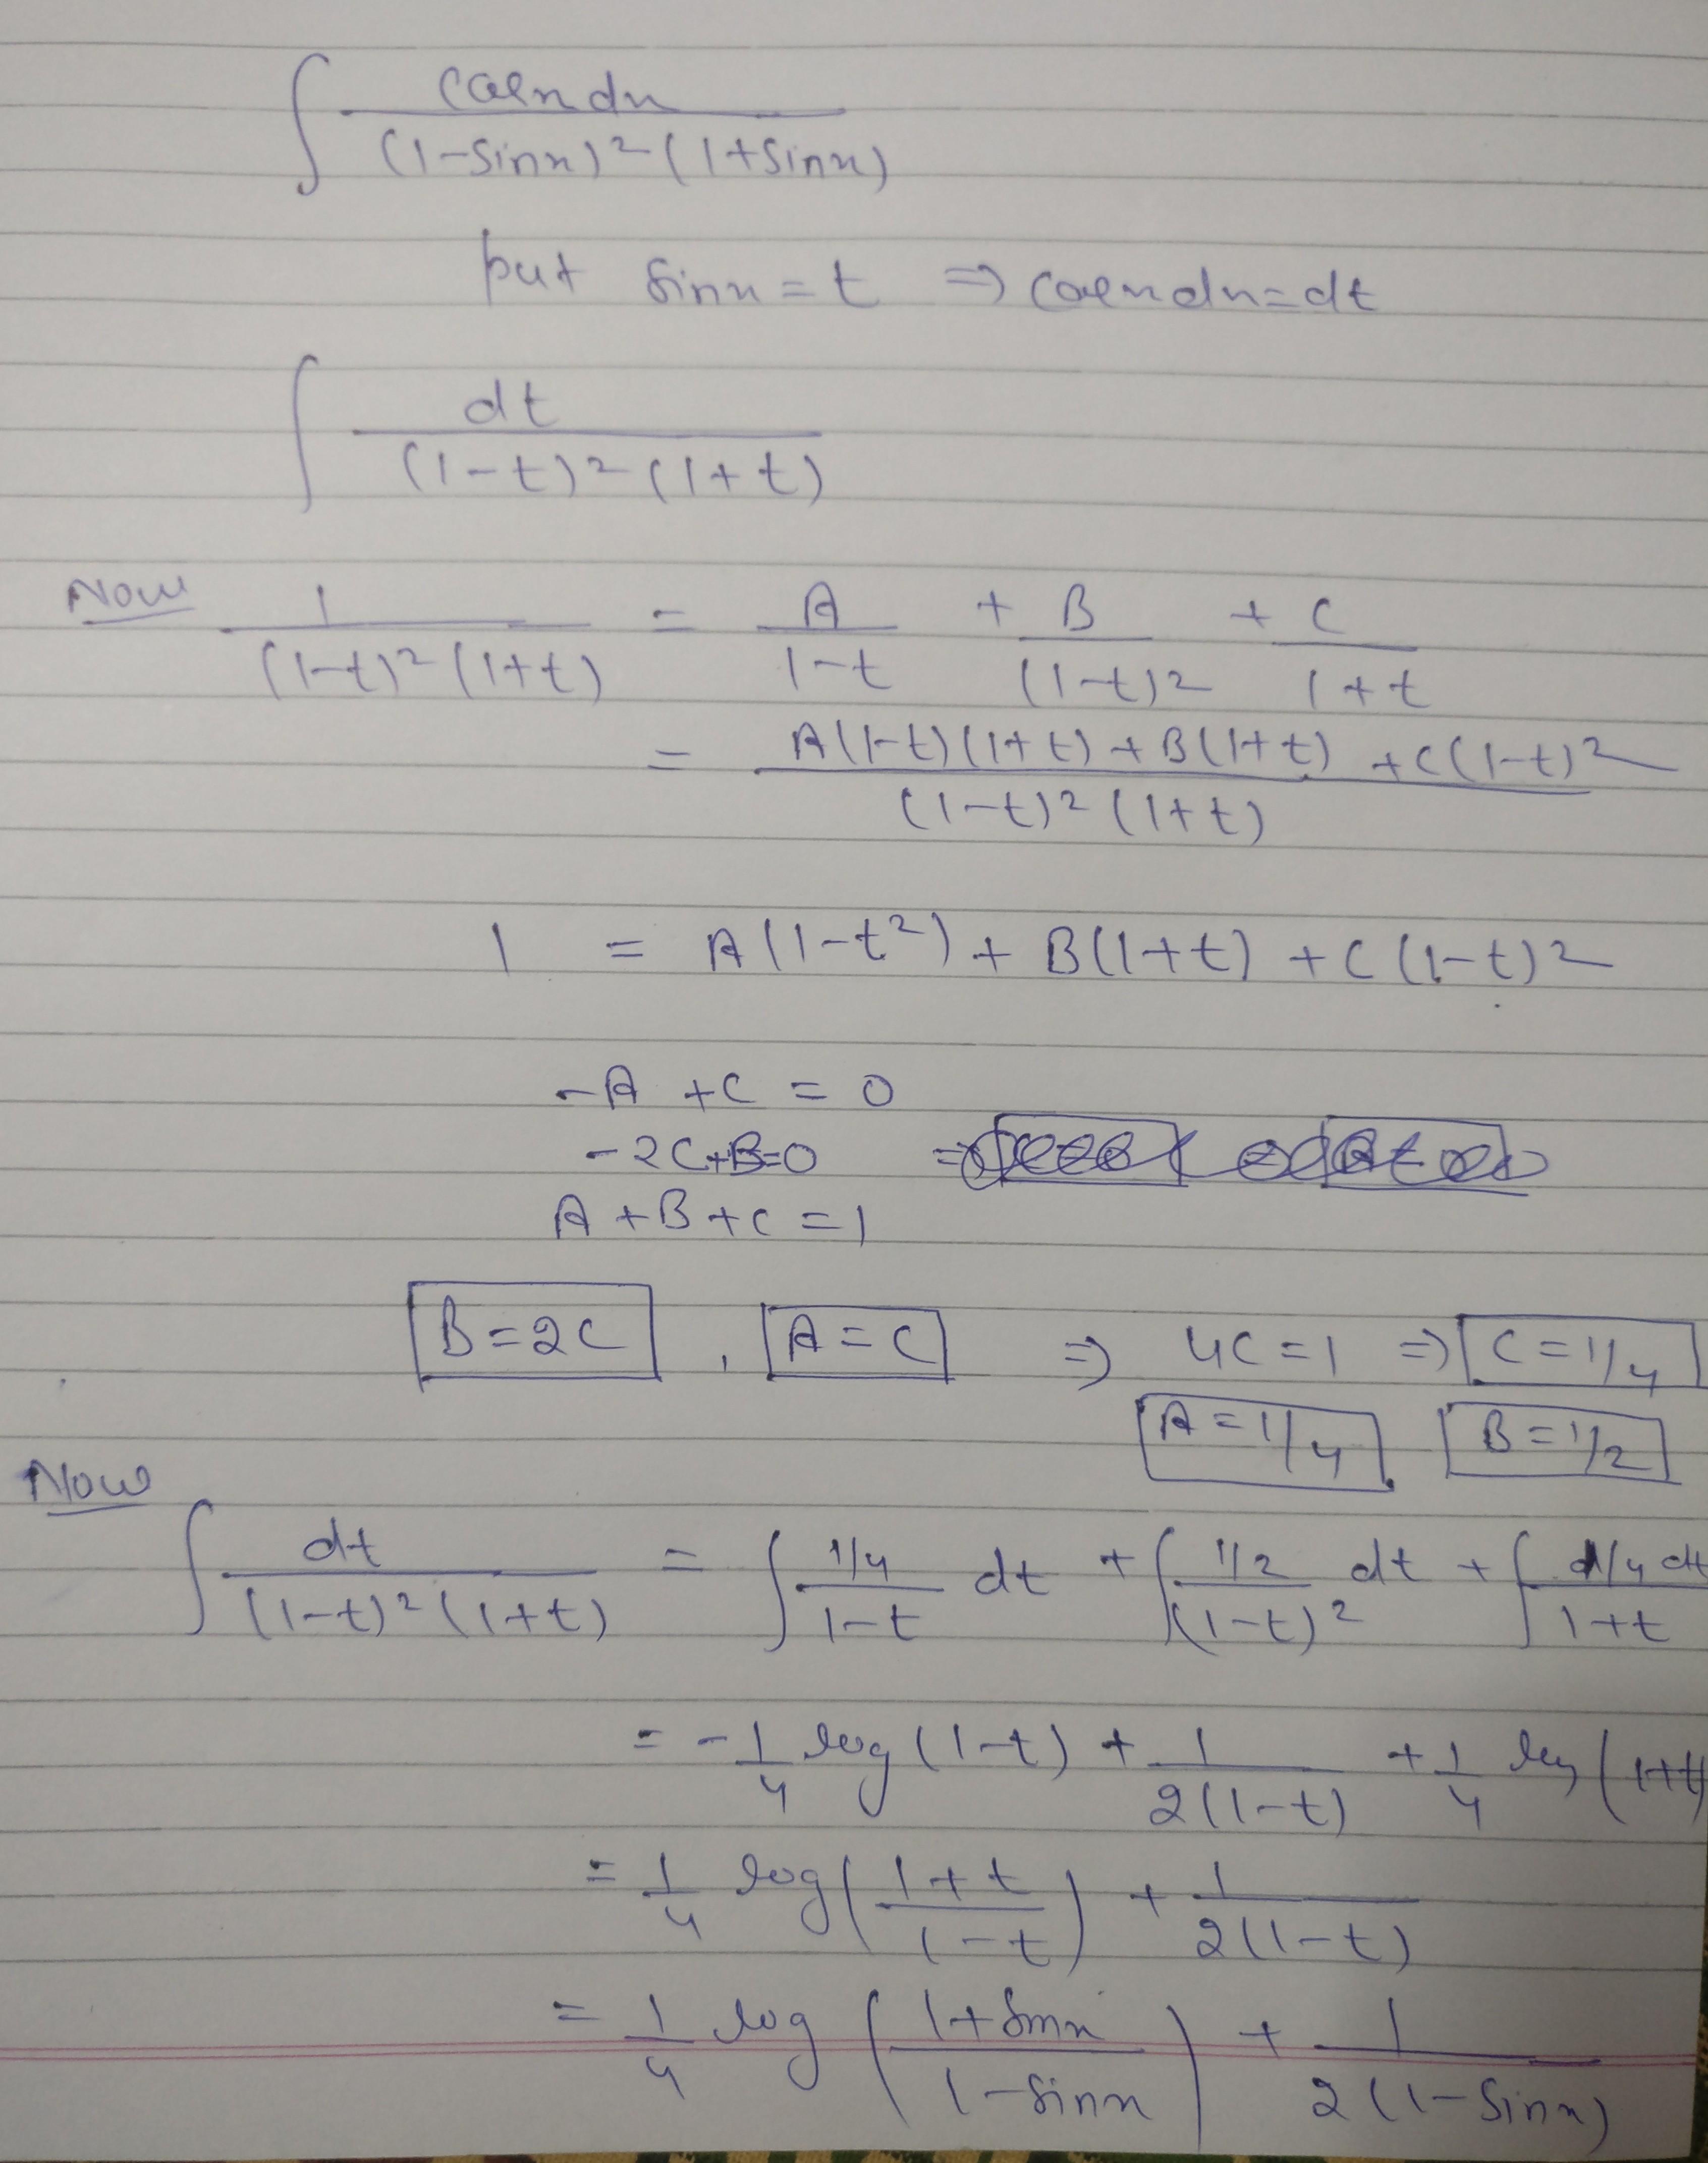 ∫ cosx dx / (1-sinx)² (1+sinx)
put sinx = t ⇒ cosx dx = dt
∫ dt / (1-t)² (1+t)
Now 1 / (1-t)² (1+t) = A / 1-t + B / (1-t)² + C / 1+t
= A(1-t)(1+t) + B(1+t) + C(1-t)² / (1-t)² (1+t)
1 = A(1-t²) + B(1+t) + C(1-t)²
-A + C = 0
-2C+B=0 =
A + B + C = 1
B=2C , A=C ⇒ 4C=1 ⇒ C=1/4
A=1/4 B=1/2
Now
∫ dt / (1-t)² (1+t) = ∫ 1/4 / 1-t dt + ∫ 1/2 / (1-t)² dt + ∫ 1/4 dt / 1+t
= - 1/4 log (1-t) + 1 / 2(1-t) + 1/4 log (1+t)
= 1/4 log ( 1+t / 1-t ) + 1 / 2(1-t)
= 1/4 log ( 1+sinx / 1-sinx ) + 1 / 2(1-sinx)